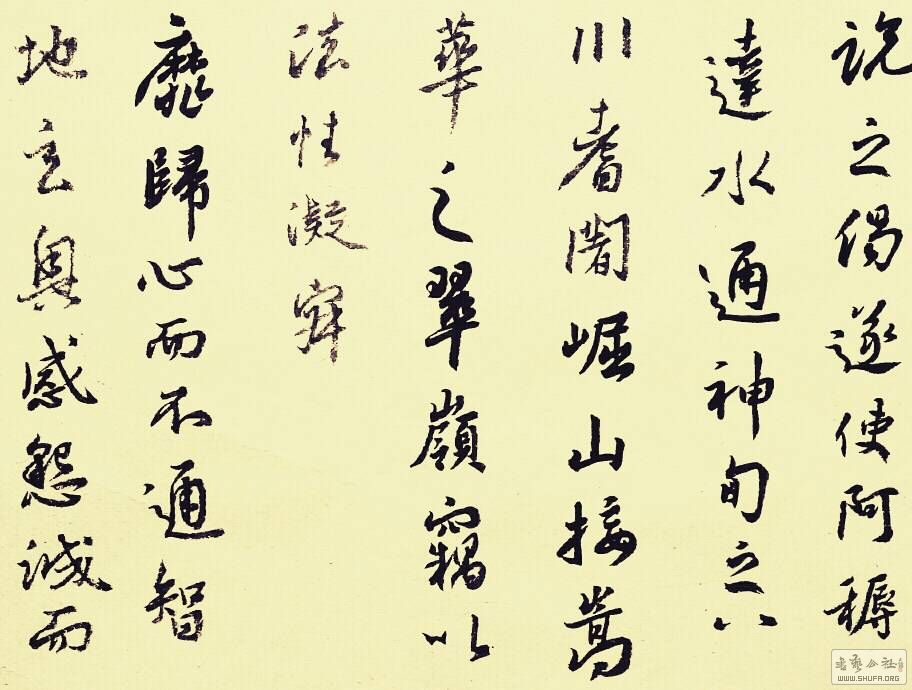 說之偈遂使阿耨
達水通神旬之八
川耆闍崛山接嵩
華之翠嶺竊以
法性凝寂
靡歸心而不通智
地玄奧感懇誠而
書藝公社
WWW.SHUFA.ORG